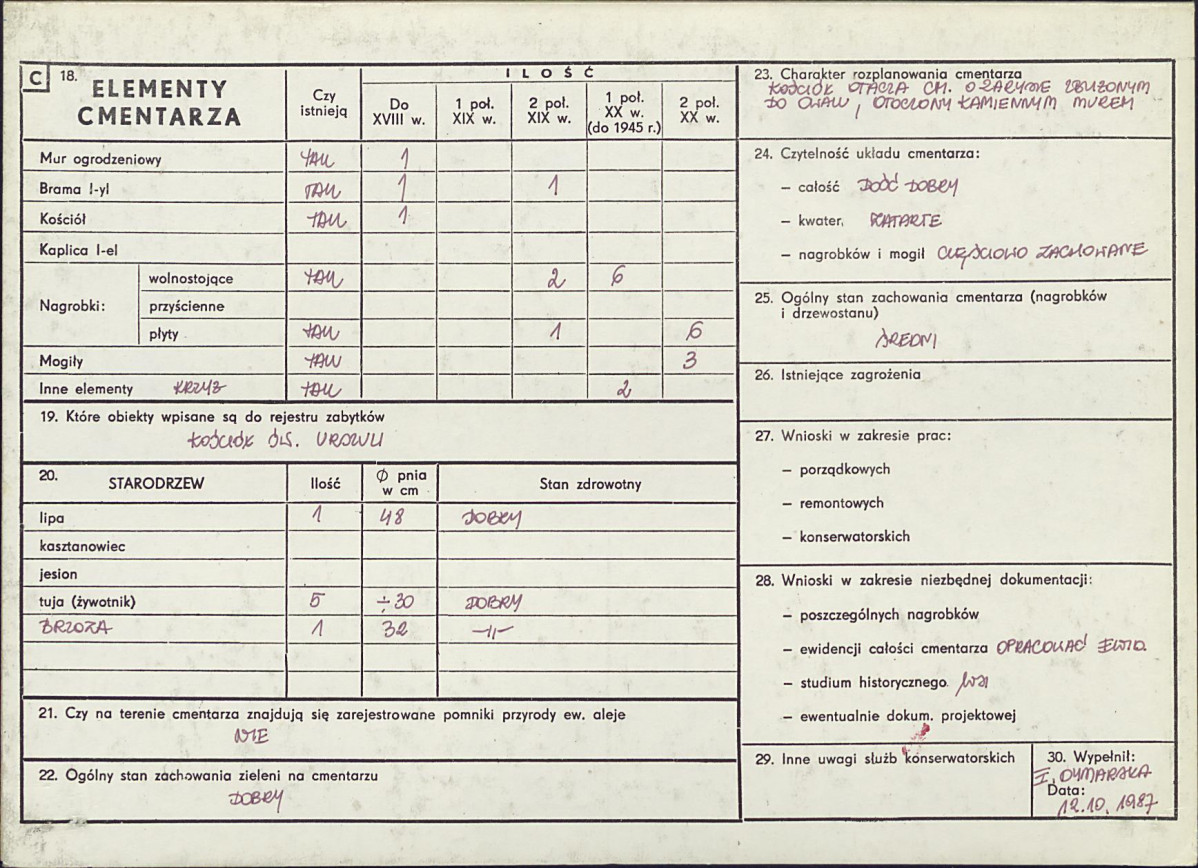 C 18. ELEMENTY CMENTARZA
Czy istnieją
ILOŚĆ
Do XVIII w.
1 poł. XIX w.
2 poł. XIX w.
1 poł. XX w. (do 1945 r.)
2 poł. XX w.
Mur ogrodzeniowy TAK 1
Brama l-yl TAK 1 1
Kościół TAK 1
Kaplica l-el
Nagrobki:
wolnostojące TAK 2 6
przyścienne
płyty TAK 1 6
Mogiły TAK 3
Inne elementy KRZYŻ TAK 2
19. Które obiekty wpisane są do rejestru zabytków
KOŚCIÓŁ ŚW. URSZULI
20. STARODRZEW
Ilość
Ø pnia w cm
Stan zdrowotny
lipa 1 48 DOBRY
kasztanowiec
jesion
tuja (żywotnik) 5 ÷30 DOBRY
BRZOZA 1 32 –"–
21. Czy na terenie cmentarza znajdują się zarejestrowane pomniki przyrody ew. aleje
NIE
22. Ogólny stan zachowania zieleni na cmentarzu
DOBRY
23. Charakter rozplanowania cmentarza
KOŚCIÓŁ OTACZA CM. O ZARYSIE ZBLIŻONYM
DO OWALU, OTOCZONY KAMIENNYM MUREM
24. Czytelność układu cmentarza:
– całość DOŚĆ DOBRY
– kwater, ZATARTE
– nagrobków i mogił CZĘŚCIOWO ZACHOWANE
25. Ogólny stan zachowania cmentarza (nagrobków
i drzewostanu)
ŚREDNI
26. Istniejące zagrożenia
27. Wnioski w zakresie prac:
– porządkowych
– remontowych
– konserwatorskich
28. Wnioski w zakresie niezbędnej dokumentacji:
– poszczególnych nagrobków
– ewidencji całości cmentarza OPRACOWAĆ EWID.
– studium historycznego WSI
– ewentualnie dokum. projektowej
29. Inne uwagi służb konserwatorskich
30. Wypełnił:
I. DYMARSKA
Data:
12.10.1987